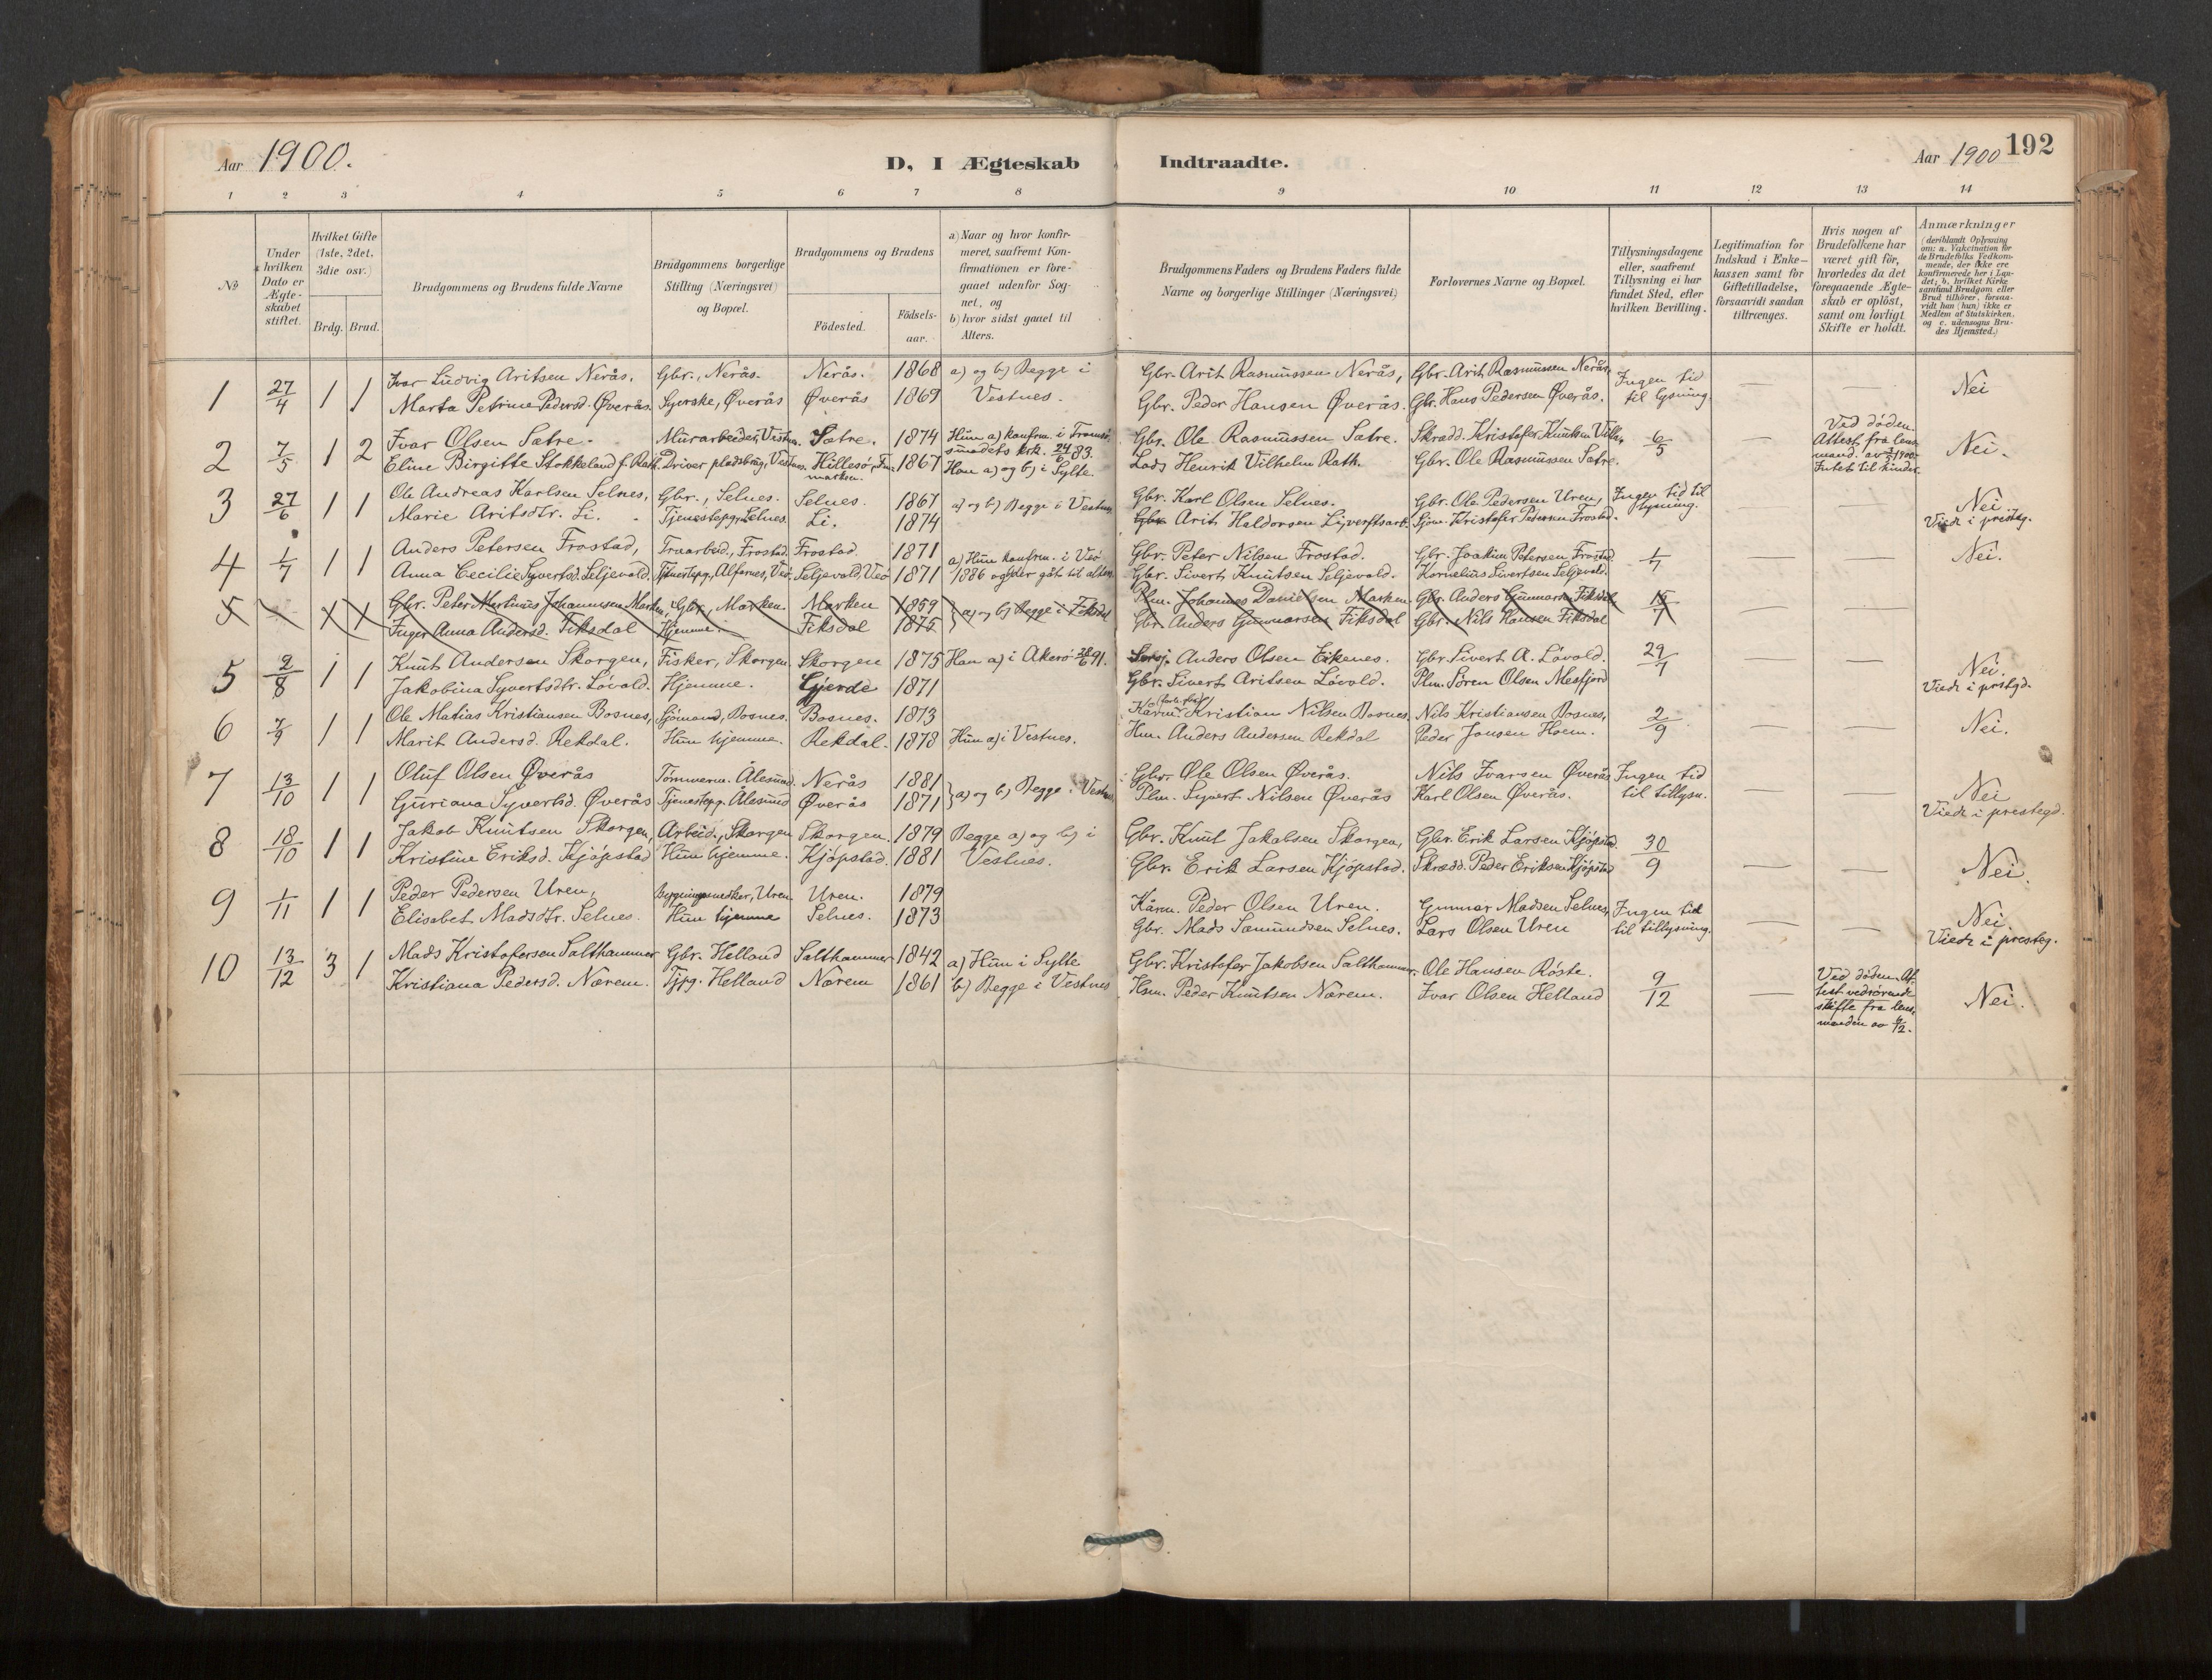 Aar 1900.
D, I Ægteskab Indtraadte.
Aar 1900 192
1 2 3 4 5 6 7 8 9 10 11 12 13 14
No
Under hvilken Dato er Ægteskabet stiftet.
Hvilket Gifte (1ste, 2det, 3die osv.)
Brdg. Brud.
Brudgommens og Brudens fulde Navne
Brudgommens borgerlige Stilling (Næringsvei) og Bopæl.
Brudgommens og Brudens
Födested. Födsels-aar.
a) Naar og hvor konfirmeret, saafremt Konfirmationen er foregaaet udenfor Sognet, og
b) hvor sidst gaaet til Alters.
Brudgommens Faders og Brudens Faders fulde Navne og borgerlige Stillinger (Næringsvei)
Forlovernes Navne og Bopæl.
Tillysningsdagene eller, saafremt Tillysning ei har fundet Sted, efter hvilken Bevilling.
Legitimation for Indskud i Enkekassen samt for Giftetilladelse, forsaavidt saadan tiltrænges.
Hvis nogen af Brudefolkene har været gift för, hvorledes da det foregaaende Ægteskab er oplöst, samt om lovligt Skifte er holdt.
Anmærkninger
(deriblandt Oplysning om: a. Vakcination for de Brudefolks Vedkommende, der ikke ere konfirmerede her i Landet; b. hvilket Kirkesamfund Brudgom eller Brud tilhörer, forsaavidt han (hun) ikke er Medlem af Statskirken, og c. udensogns Brudes Hjemsted.)
1 27/4 1 1 Ivar Ludvig Aritsen Nerås. Gbr., Nerås. Nerås. 1868 a) og b) Begge i Gbr. Arit Rasmussen Nerås, Gbr. Arit Rasmussen Nerås Ingen tid — — Nei
Marta Petrine Pedersd. Øverås. Syerske, Øverås Øverås 1869 Vestnes. Gbr. Peder Hansen Øverås. Gbr. Hans Pedersen Øverås. til lysning.
2 7/5 1 2 Ivar Olsen Sætre. Murarbeider, Vestn. Sætre. 1874 Hun a) konfirm. i Tromsösundets krk. 24/6 83. Gbr. Ole Rasmussen Sætre. Skrædd. Kristofer Knutsen Villa, 6/5 — Ved döden. Attest fra lensmand. av 3/5 1900. Intet til hinder. Nei.
Eline Birgitte Stokkeland f. Rath. Driver pladsbrug, Vestnes. Hillesö, Finmarken. 1867 Han a) og b) i Sylte. Lods Henrik Vilhelm Rath. Gbr. Ole Rasmussen Sætre.
3 27/6 1 1 Ole Andreas Karlsen Selnes, Gbr., Selnes. Selnes. 1867 a) og b) Begge i Vestnes Gbr. Karl Olsen Selnes. Gbr. Ole Pedersen Uren, Ingen tid til lysning. — — Nei
Marie Aritsdtr. Li. Tjenestepg., Selnes. Li. 1874 Gbr. Arit Haldorsen Li, verftsarb. Sjöm. Kristofer Petersen Frostad. Viede i presteg.
4 1/7 1 1 Anders Petersen Frostad, Træarbeid., Frostad. Frostad. 1871 a) Hun konfirm. i Veö Gbr. Peter Nilsen Frostad. Gbr. Joakim Petersen Frostad 1/7 — — Nei.
Anna Cecilie Syvertsd. Seljevold. Tjenestepg., Alfarnes, Veö. Seljevold, Veö 1871 1886 og der gåt til alters Gbr. Sivert Knutsen Seljevold. Kornelius Sivertsen Seljevold.
5 1 1 Gbr. Peter Martinus Johannesen Marken, Gbr., Marken. Marken 1859 a) og b) Begge i Fiksdal Plm. Johannes Danielsen Marken. Gbr. Anders Gunnarsen Fiksdal 15/7 — —
Inger Anna Andersd. Fiksdal Hjemme. Fiksdal 1875 Gbr. Anders Gunnarsen Fiksdal Gbr. Nils Hansen Fiksdal
5 2/8 1 1 Knut Andersen Skorgen, Fisker, Skorgen. Skorgen 1875 Han a) i Akerö 28/6 91. Anders Olsen Eikenes. Gbr. Sivert A. Lövold. 29/7 — — Nei.
Jakobina Syvertsdtr. Lövold. Hjemme. Gjerde 1871 Gbr. Sivert Aritsen Lövold. Plm. Sören Olsen Mesfjord Viede i prstgd.
6 7/9 1 1 Ole Matias Kristiansen Bosnes, Sjömand, Bosnes. Bosnes. 1873 Kårm. Kristian Nilsen Bosnes. Nils Kristiansen Bosnes, 2/9 — — Nei.
Marit Andersd. Rekdal. Hun hjemme. Rekdal. 1878 Hun a) i Vestnes. Hm. Anders Andersen Rekdal Peder Jonsen Hoem.
7 13/10 1 1 Oluf Olsen Øverås Tömmerm. Ålesund. Nerås 1881 a) og b) Begge i Vestnes Gbr. Ole Olsen Øverås. Nils Ivarsen Øverås Ingen tid — — Nei
Guriana Syvertsd. Øverås Tjenestepg. Ålesund Øverås 1871 Plm. Syvert Nilsen Øverås Karl Olsen Øverås. til tillysn. Viede i prestegd.
8 18/10 1 1 Jakob Knutsen Skorgen, Arbeid., Skorgen Skorgen. 1879 Begge a) og b) i Gbr. Knut Jakobsen Skorgen, Gbr. Erik Larsen Kjöpstad. 30/9 — — Nei.
Kristine Eriksd. Kjöpstad Hun hjemme. Kjöpstad. 1881 Vestnes. Gbr. Erik Larsen Kjöpstad. Skrædd. Peder Eriksen Kjöpstad
9 1/11 1 1 Peder Pedersen Uren, Bygningssnedker, Uren. Uren. 1879 Kårm. Peder Olsen Uren. Gunnar Madsen Selnes, Ingen tid — — Nei.
Elisabet Madsdtr. Selnes. Hun hjemme Selnes. 1873 Gbr. Mads Samundsen Selnes. Lars Olsen Uren til tillysning. Viede i presteg.
10 13/12 3 1 Mads Kristofersen Salthammer Gbr. Helland Salthammer 1842 a) Hun i Sylte Gbr. Kristofer Jakobsen Salthammer. Ole Hansen Röste. 9/12 — Ved döden. Attest vedrörende skifte fra lensmanden av 6/12. Nei.
Kristiana Pedersd. Nærem. Tjpg. Helland Nærem 1861 b) Begge i Vestnes Hsm. Peder Knutsen Nærem. Ivar Olsen Helland